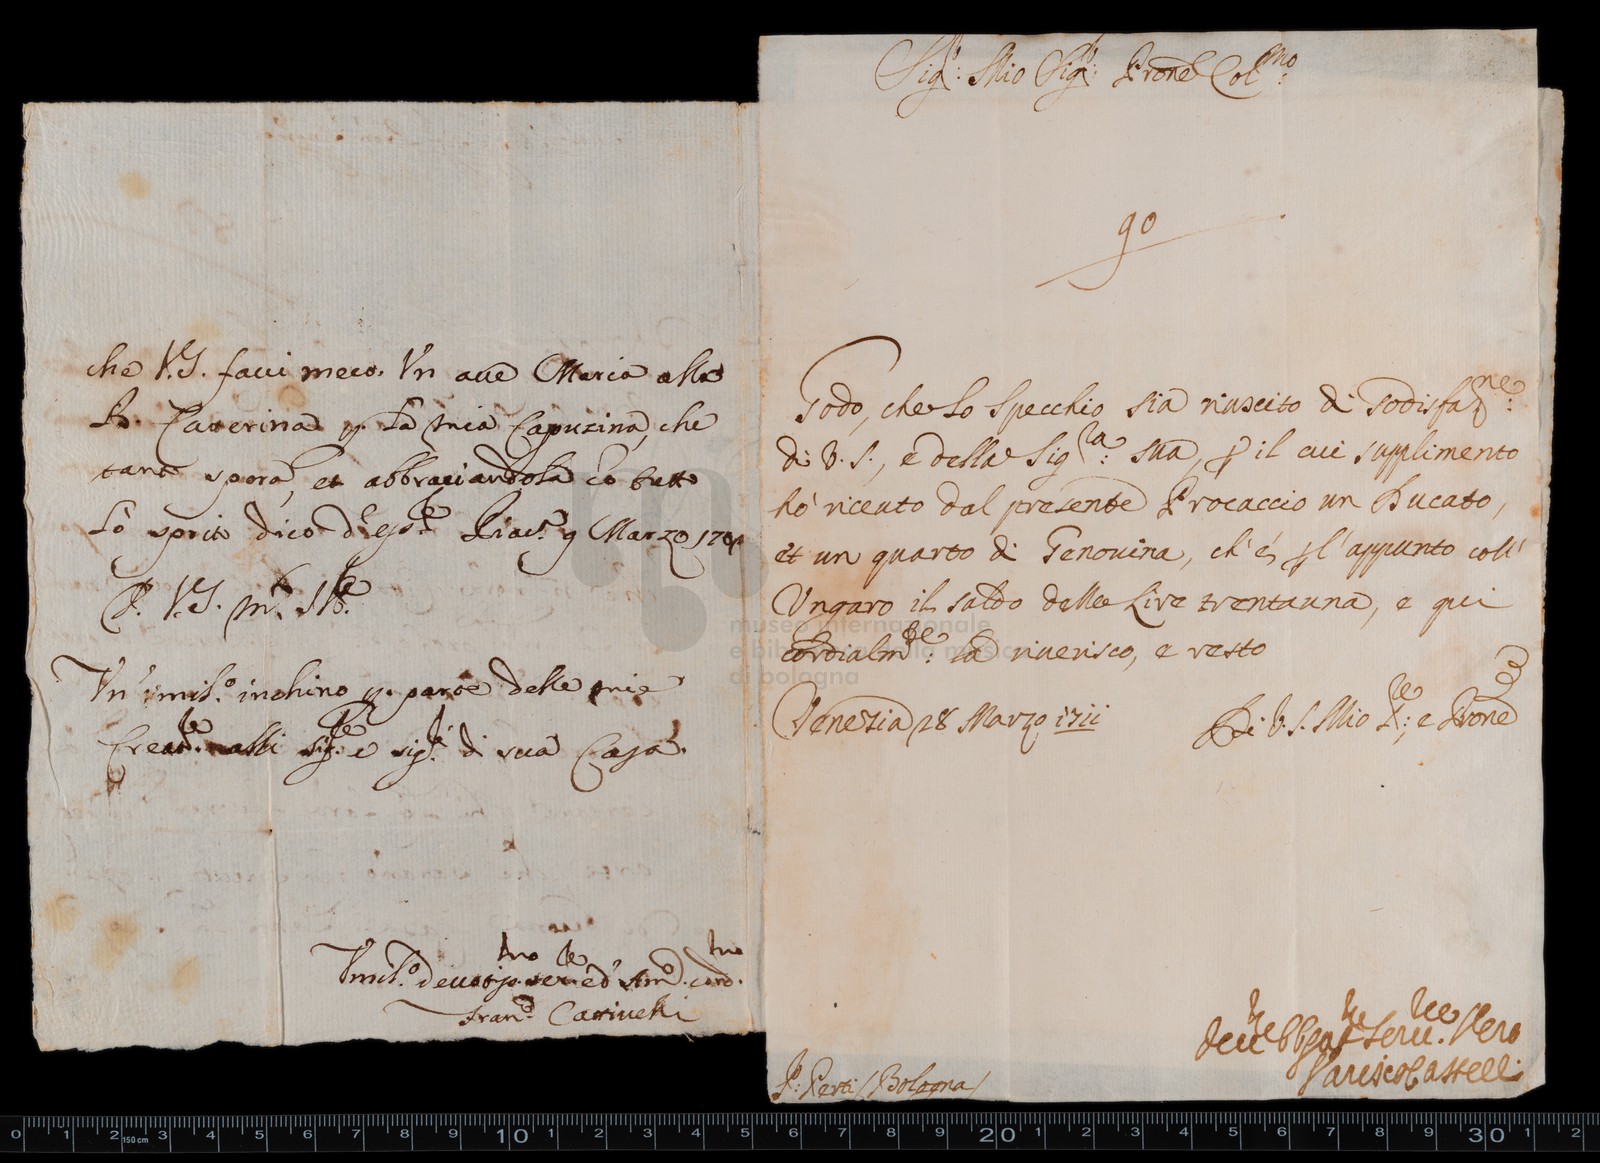 che V.S. facci meco. Un aue Maria alla
B. Caterina p. la mia Capuzina, che
tanto spera, et abbraciandola cô tutto
Lô spirito dico d'esse Piac. 9 Marzo 170
D. V.S. m.
Un' umil.o inchino p. parte delle mie
Creat.re alli sig.re e sig.e di sua Casa.
Umil.o deuot.mo ser.re ed' Am.o cord.mo
Fran.o
Sig.r: Mio Sig.r: Prone Col.mo:
90
Godo, che lo specchio sia riuscito di sodisfaz.ne:
di V. S., e della Sig.ra: sua, p il cui supplimento
hò riceuto dal presente Procaccio un Ducato,
et un quarto di Genouina, ch'é, p l'appunto coll'
Ungaro il saldo delle Lire trentauna, e qui
Cordialm.te: la riuerisco, e resto
Venezia 28 Marzo 1711
Di V. S. Mio S.re; e Prone
museo internazionale
e biblioteca della musica
di bologna
S.r: Perti / Bologna /
deu.mo Obbgat.mo Seru.re Vero
Parisco Castelli
0 1 2 150 cm 3 4 5 6 7 8 9 10 1 2 3 4 5 6 7 8 9 20 1 2 3 4 5 6 7 8 9 30 1 2